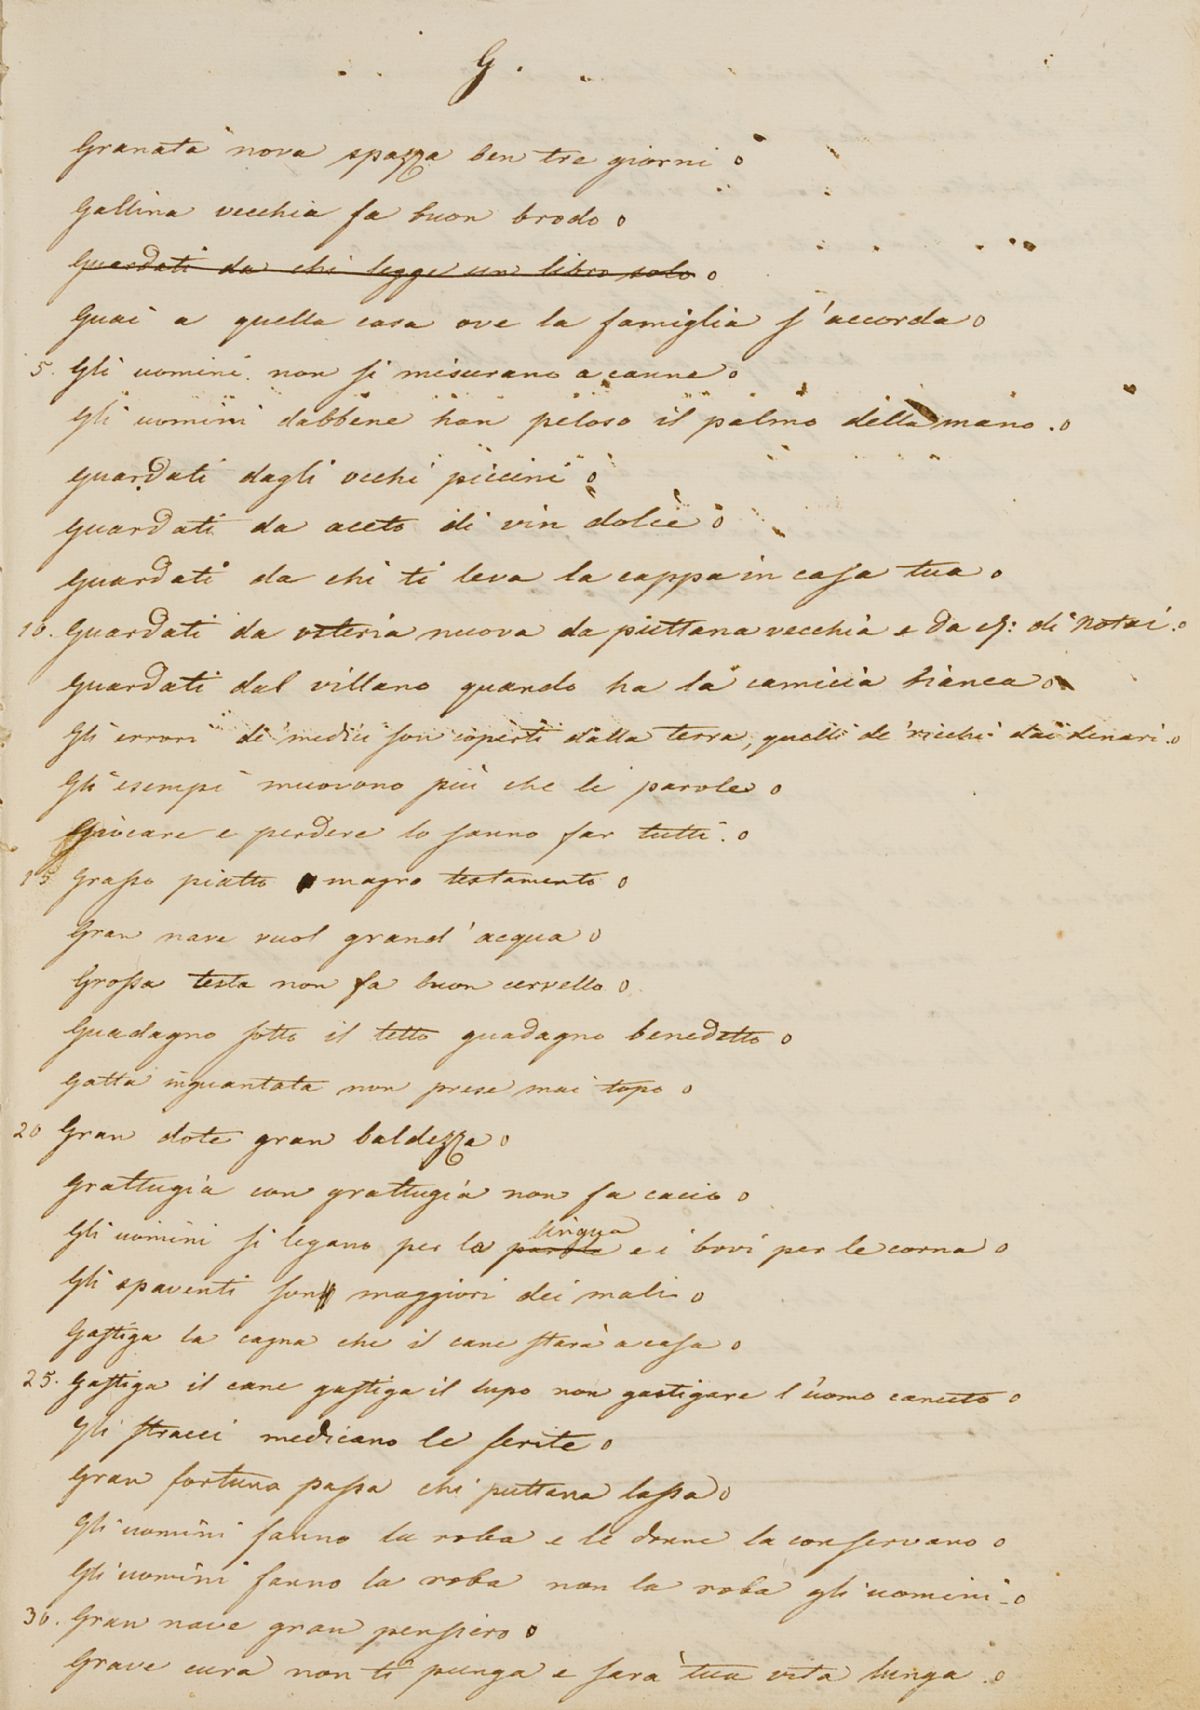 G.
Granata nova spazza ben tre giorni o
Gallina vecchia fa buon brodo o
Guardati da chi legge un libro solo o
Guai a quella casa ove la famiglia s'accorda o
5. Gli uomini non si misurano a canne o
Gli uomini dabbene han peloso il palmo della mano. o
Guardati dagli occhi piccini o
Guardati da aceto di vin dolce o
Guardati da chi ti leva la cappa in casa tua o
10. Guardati da osteria nuova da puttana vecchia e da &: di notai. o
Guardati dal villano quando ha la camicia bianca o
Gli errori de' medici son coperti dalla terra, quelli de' ricchi dai denari. o
Gli esempi muovono più che le parole o
Giocare e perdere lo sanno far tutti. o
15 Grasso piatto magro testamento o
Gran nave vuol grand'acqua o
Grossa testa non fa buon cervello o
Guadagno sotto il tetto guadagno benedetto o
Gatta inguantata non prese mai topo o
20 Gran dote gran baldezza o
Grattugia con grattugia non fa cacio o
Gli uomini si legano per la parola lingua e i bovi per le corna o
Gli spaventi son maggiori dei mali o
Gastiga la cagna che il cane starà a casa o
25. Gastiga il cane gastiga il lupo non gastigare l'uomo canuto o
Gli stracci medicano le ferite o
Gran fortuna passa chi puttana lassa o
Gli uomini fanno la roba e le donne la conservano o
Gli uomini fanno la roba non la roba gli uomini. o
30. Gran nave gran pensiero o
Grave cura non ti punga e sarà tua vita lunga. o